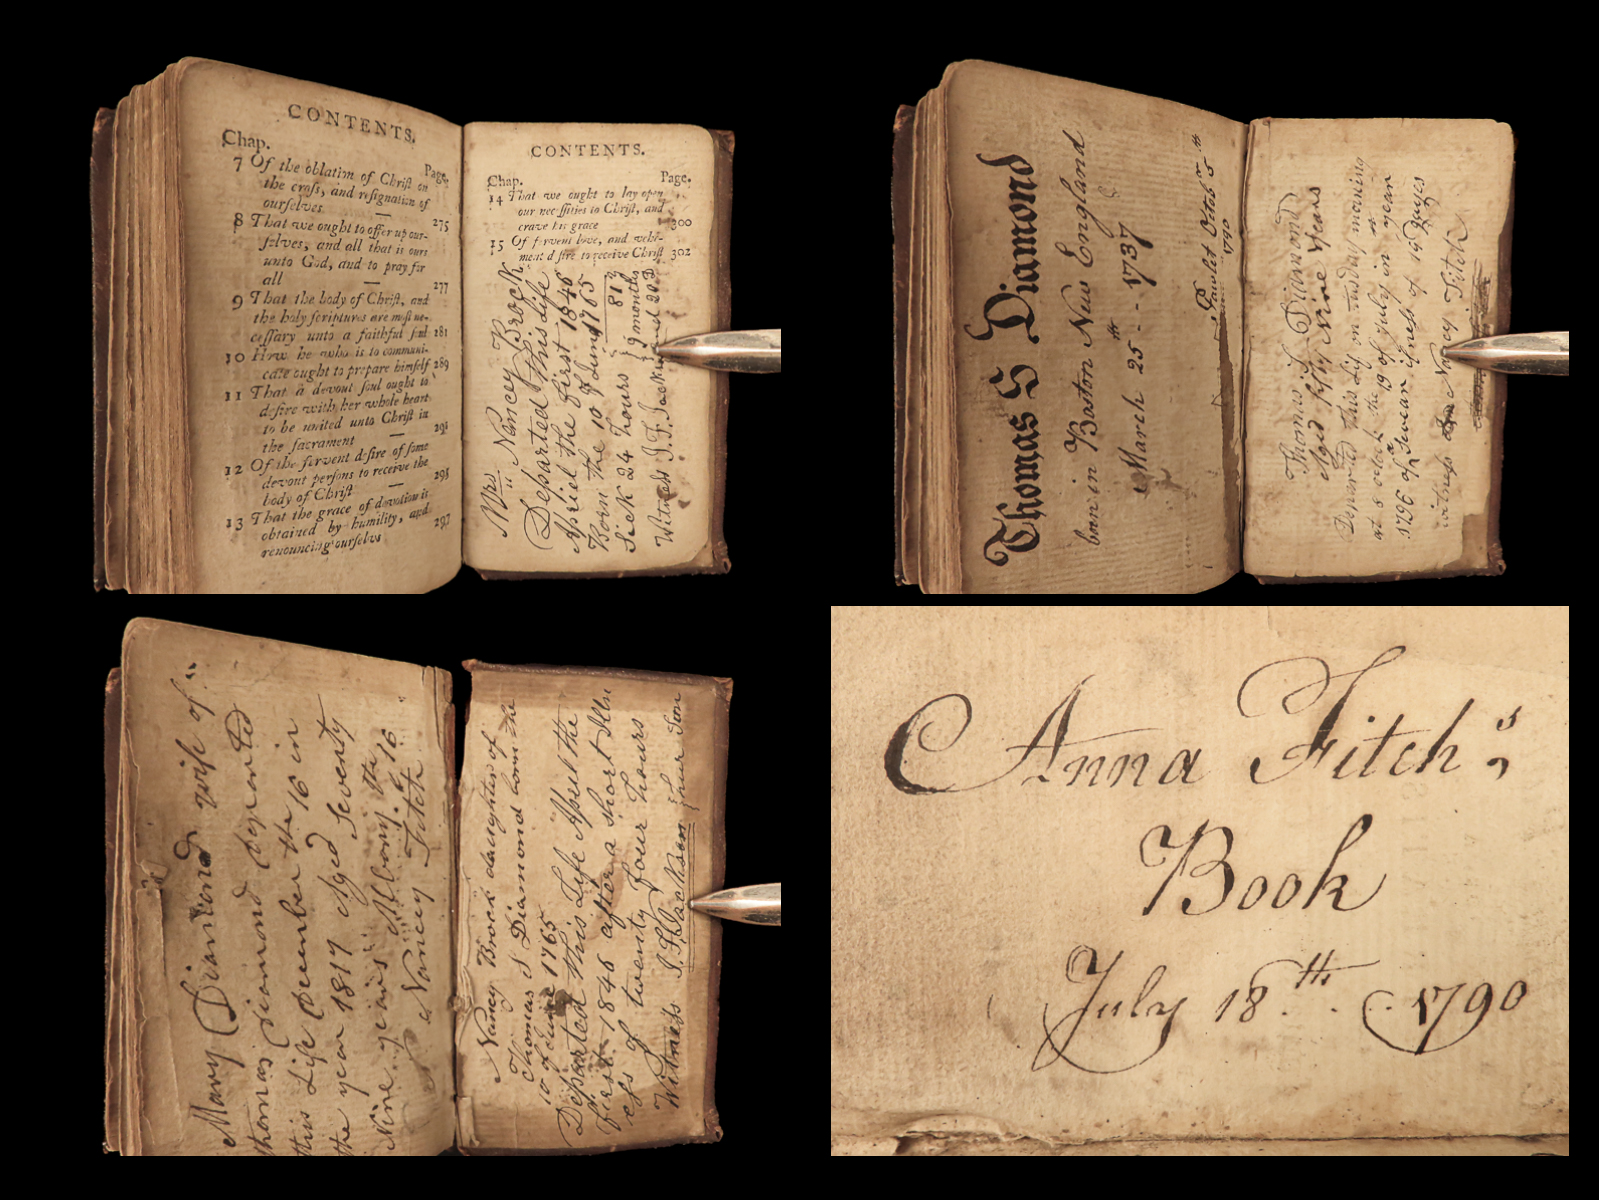 CONTENTS.
Chap.
Page.
7 Of the oblation of Christ on
the cross, and resignation of
ourselves
275
8 That we ought to offer up our-
selves, and all that is ours
unto God, and to pray for
all
277
9 That the body of Christ, and
the holy scriptures are most ne-
cessary unto a faithful soul 281
10 How he who is to communi-
cate ought to prepare himself 289
11 That a devout soul ought to
desire with her whole heart
to be united unto Christ in
the sacrament 291
12 Of the fervent desire of some
devout persons to receive the
body of Christ 295
13 That the grace of devotion is
obtained by humility, and
renouncing ourselves 297
CONTENTS.
Chap. Page.
14 That we ought to lay open
our necessities to Christ, and
crave his grace 300
15 Of fervent love, and vehe-
ment desire to receive Christ 302
Mrs. Nancy Brock
Departed this life
Apriel the first 1846
Born the 10 of June 1765
Sick 24 hours
81
9 months
Witness J. F. Jackson
Thomas S Diamond
born in Boston New England
March 25th - - 1737
Pawlet Octobr 5th
1790
Thomas S Diamond
Aged fifty Nine years
Departed This Life on tusday morning
at 8 oclock the 19 of July in the year
1796 of
illness of 19 Dayes
witness Nancy Fitch
Mary Diamond wife of
thomas Diamond Departed
this Life December the 16 in
the year 1817 Aged Seventy
Nine years Albany. the 16
Nancy Fitch
Nancy Brock daughter of
Thomas S Diamond born the
10 of June 1765
Departed this Life Apriel the
first 1846 after a short illn
ess of twenty four hours
Witness J. F. Jackson
her Son
Anna Fitch's
Book
July 18th. . 1790